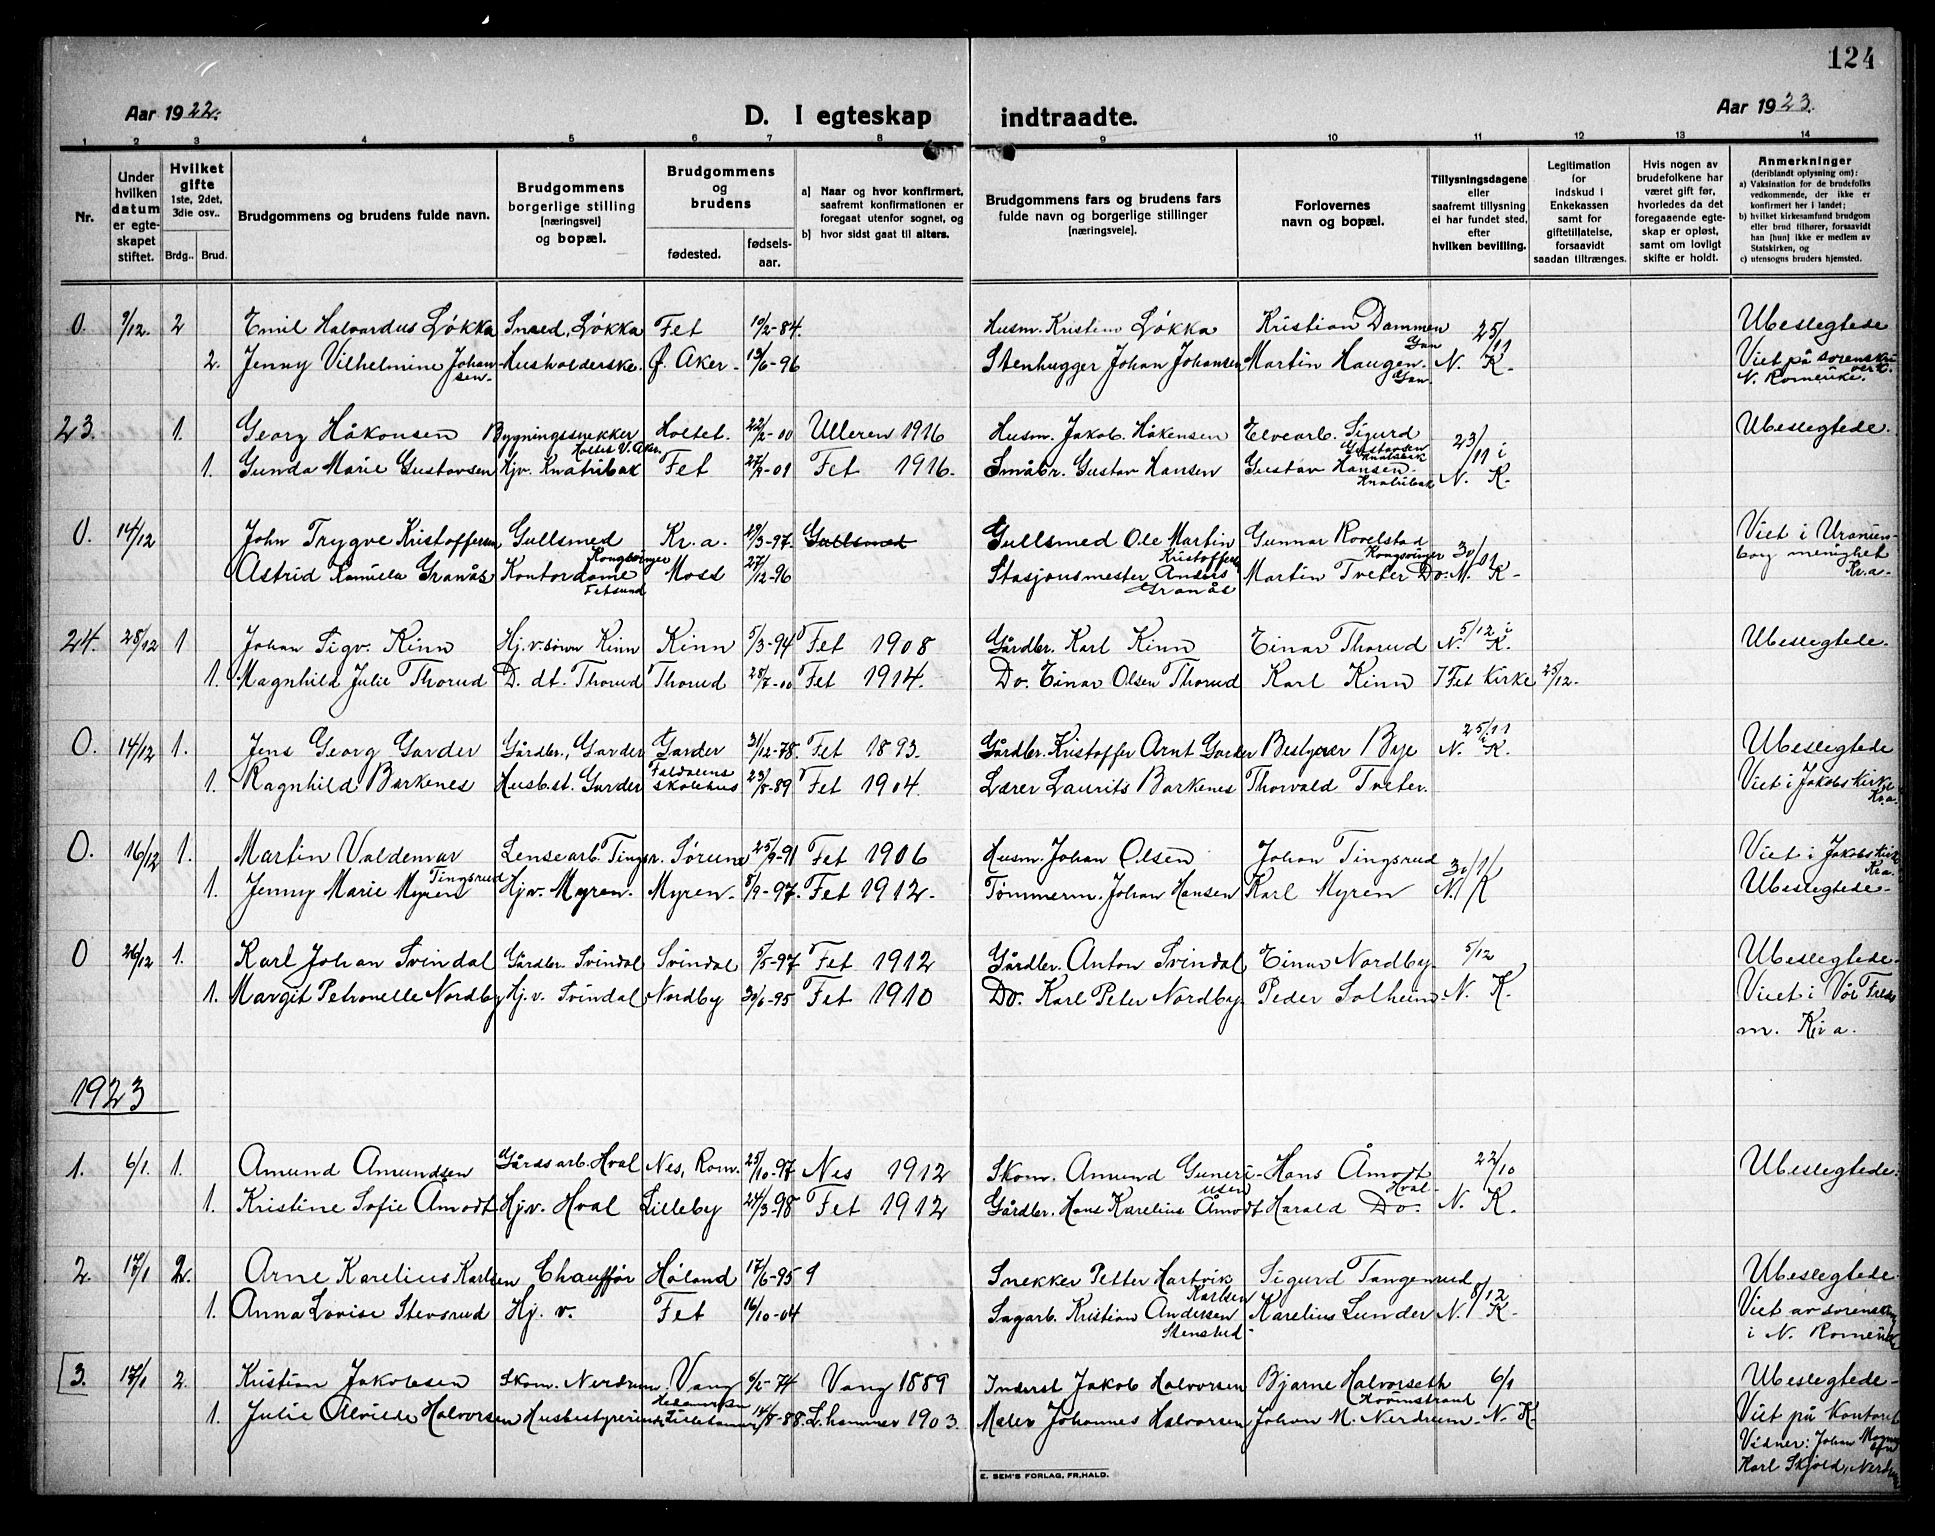 124
Aar 1922.
D. I egteskap indtraadte.
Aar 1923.
1 2 3 4 5 6 7 8 9 10 11 12 13 14
Nr.
Under hvilken datum er egteskapet stiftet.
Hvilket gifte 1ste, 2det, 3die osv..
Brdg.. Brud.
Brudgommens og brudens fulde navn.
Brudgommens borgerlige stilling [næringsvei] og bopæl.
Brudgommens og brudens
fødested.
fødsels-aar.
a] Naar og hvor konfirmert, saafremt konfirmationen er foregaat utenfor sognet, og
b] hvor sidst gaat til alters.
Brudgommens fars og brudens fars fulde navn og borgerlige stillinger [næringsveie].
Forlovernes navn og bopæl.
Tillysningsdagene eller saafremt tillysning ei har fundet sted, efter hvilken bevilling.
Legitimation for indskud i Enkekassen samt for giftetillatelse, forsaavidt saadan tiltrænges.
Hvis nogen av brudefolkene har været gift før, hvorledes da det foregaaende egteskap er opløst, samt om lovligt skifte er holdt.
Anmerkninger (deriblandt oplysning om):
a) Vaksination for de brudefolks vedkommende, der ikke er konfirmert her i landet;
b) hvilket kirkesamfund brudgom eller brud tilhører, forsaavidt han [hun] ikke er medlem av Statskirken, og
c) utensogns bruders hjemsted.
0. 9/12. 2 Emil Halvardus Løkka Smed, Løkka Fet 10/2-84. Husm. Kristian Løkka Kristian Dammen Gan 25/11 Ubeslegtede
2. Jenny Vilhelmine Johansen Husholderske. Ø. Aker. 13/6-96 Stenhugger Johan Johansen Martin Haugen. Gan. N. K. Viet på sorenskriverk. N. Romerike.
23. 1. Georg Håkonsen Bygningssnekker Holtet V. Aker. Holtet. 22/2-00 Ulleren 1916 Husm. Jakob Håkensen Elvearb. Sigurd Gustavsen Knatribak 23/11 i Ubeslegtede.
1. Gunda Marie Gustavsen Hjv. Knatribak Fet 27/2-01 Fet 1916. Småbr. Gustav Hansen Gustav Hansen. Knatribak N. K.
0. 14/12 John Trygve Kristoffersen Gullsmed Kongsvinger Kr.a. 29/3-97. Gullsmed Gullsmed Ole Martin Kristoffersen Gunnar Rovelstad Kongsvinger 30/11 Viet i Uranienborg menighet Kr.a.
Astrid Kamilla Granås Kontordame Fetsund Moss 27/12-96 Stasjonsmester Anders Granås Martin Tveter Do. N. K.
24. 28/12 1 Johan Sigv. Kinn Hj.v.sønn Kinn Kinn 5/3-94 Fet 1908 Gårdbr. Karl Kinn Einar Thorud 5/12 i N. K. Ubeslegtede.
1. Magnhild Julie Thorud D. dt. Thorud Thorud 28/7-00 Fet 1914. Do. Einar Olsen Thorud Karl Kinn I Fet Kirke 25/12.
0. 14/12 1. Jens Georg Garder Gårdbr., Garder Garder 31/12-78. Fet 1893. Gårdbr. Kristoffer Arnt Garder Bestyrer Bye 25/11 i N. K. Ubeslegtede
1. Ragnhild Barkenes Husb.st. Garder Faldalens skolehus 23/8-89 Fet 1904. Lærer Laurits Barkenes Thorvald Tveter. Viet i Jakobs Kirke Kr.a.
0. 16/12 1. Martin Valdemar Tingsrud Lensearb. Tingsr. Sørum 25/9-91 Fet 1906 Husm. Johan Olsen Johan Tingsrud 30/11 Viet i Jakobs Kirke Kr.a.
1. Jenny Marie Myren Hjv. Myren. Myren. 8/9-97. Fet 1912. Tømmerm. Johan Hansen Karl Myren N. K Ubeslegtede.
0 26/12 1. Karl Johan Svindal Gårdbr. Svindal Svindal 5/5-97 Fet 1912 Gårdbr. Anton Svindal Einar Nordby 5/12 Ubeslegtede.
1. Margit Petronelle Nordby Hj.v. Svindal Nordby 30/6-95 Fet 1910 Do. Karl Peter Nordby Peder Solheim N. K. Viet i Vår Frels m. Kr.a.
1923
1. 6/1. 1. Amund Amundsen Gårdsarb. Hval Nes, Rom. 25/10-97 Nes 1912 Skom. Amund Guneriusen Hans Åmodt Hval. 22/10 Ubeslegtede.
1. Kristine Sofie Åmodt Hjv. Hval Lilleby 24/3-98 Fet 1912 Gårdbr. Hans Karelius Åmodt Harald Do. N. K.
2. 17/1 2. Arne Karelius Karlsen Chauffør Høland 17/6-95 9 Snekker Petter Hartvik Karlsen Sigurd Tangerud 8/12 Ubeslegtede.
1. Anna Lovise Stensrud Hj. v. Fet 16/10-04 Sagarb. Kristian Andersen Stensrud Karelius Lunder N. K. Viet av sorenskr. i N. Romerike
[3. 17/1 2. Kristian Jakobsen Skom. Nerdrum Vang Hedmarken 6/6-74 Vang 1889 Inderst Jakob Halvorsen Bjarne Halvorseth 6/1 Ubeslegtede.
1. Julie Alvilde Halvorsen Husbestyrerinde Lillehammer 14/8-88. L.hammer 1903. Maler Johannes Halvorsen Johan M. Nerdrum. N. K. Viet på Kontoret
Vidner: Johan Magnus
Karl Skjold, Nerdrum
E. SEM'S FORLAG, FR.HALD.